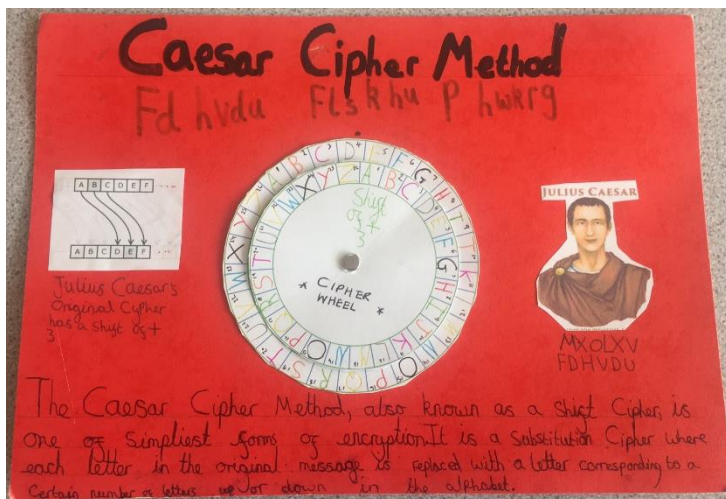 Caesar Cipher Method
Fdhvdu FLskhu Phwkrg
A B C D E F
A B C D E F
Julius Caesar's
Original Cypher
has a shift of +
3
Shift
of +
3
CIPHER
WHEEL
JULIUS CAESAR
MXOLXV
FDHVDU
The Caesar Cipher Method, also known as a Shift Cipher, is
one of simpliest forms of encryption. It is a Substitution Cipher where
each letter in the original message is replaced with a letter corresponding to a
certain number of letters up or down in the alphabet.